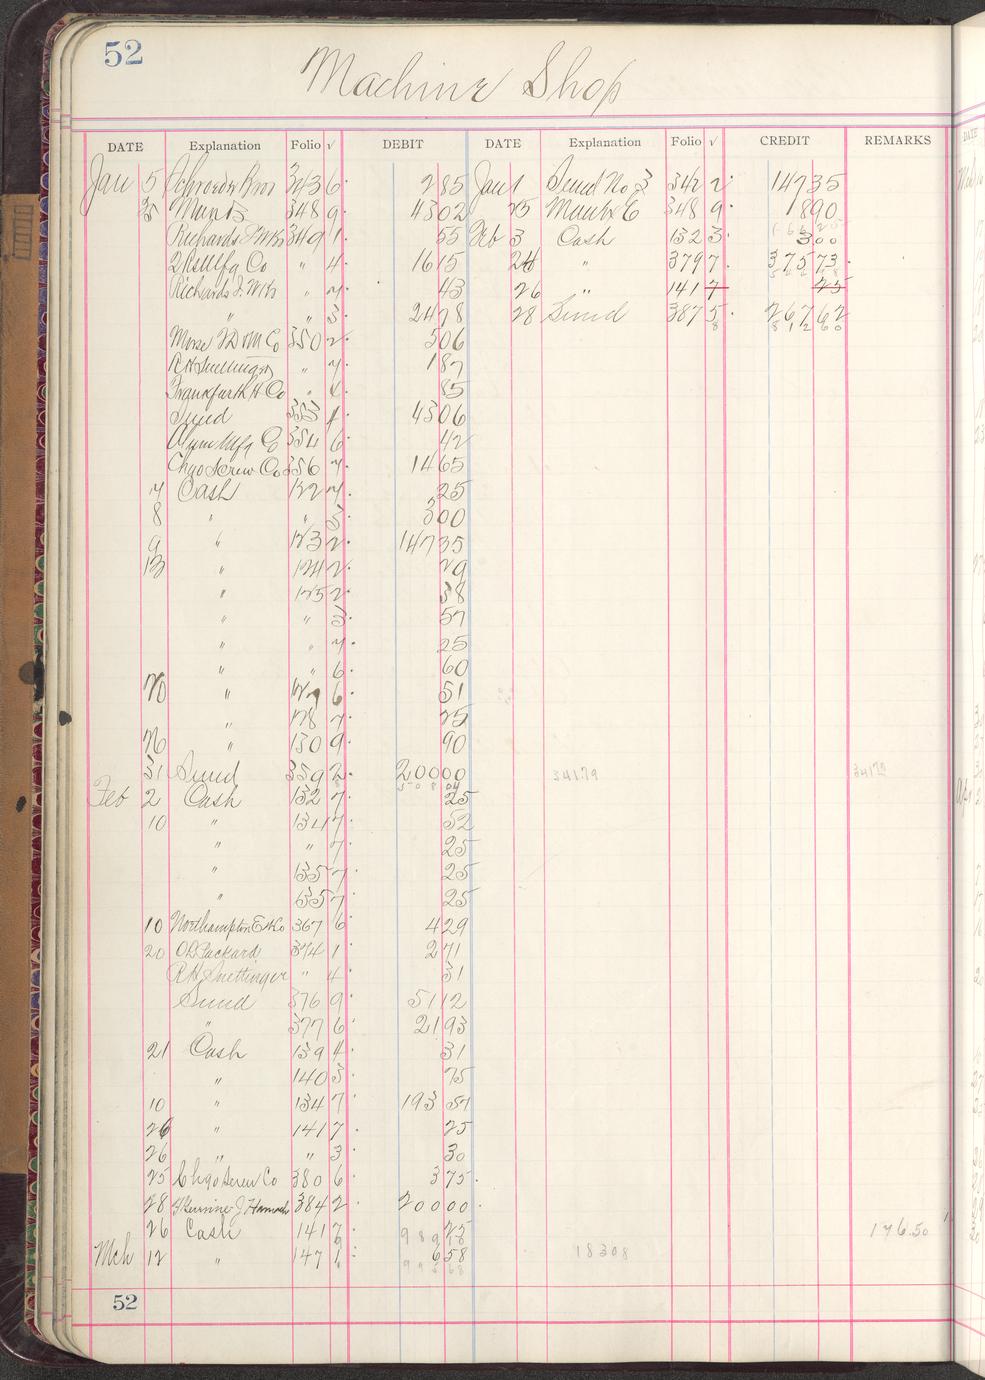 52
Machine Shop
DATE Explanation Folio √ DEBIT DATE Explanation Folio √ CREDIT REMARKS
Jan 5 Schroeder Bros 343 6 2 85 Jan 1 Sund No 3 342 2 147 35
25 348 9 43 02 25 348 9 18 90
Richards J. Wks 349 1 55 Feb 3 Cash 132 3 3 00
Mfg Co " 4 16 15 24 " 379 7 375 73
Richards J. Wks " 7 43 26 " 141 7 25
" " 3 24 78 28 Sund 387 5 267 62
Morse T D M Co 350 2 5 06
R H " 7 1 87
Frankfurth H Co " 4 85
Sund 353 4 43 06
Mfg Co 354 6 42
Chgo Screw Co 356 7 14 65
7 Cash 122 7 25
8 " " 3 3 00
9 " 123 2 147 35
13 " 124 2 29
" 125 2 38
" " 3 57
" " 7 25
" " 6 60
20 " 127 6 51
" 128 7 25
26 " 130 9 90
31 Sund 359 2 200 00 34179 34179
Feb 2 Cash 132 7 25
10 " 134 7 52
" " 7 25
" 135 7 25
" 135 7 25
10 Northampton E & Co 367 6 4 29
20 O L Packard 374 1 2 71
R H " 4 31
Sund 376 9 51 12
" 377 6 21 93
21 Cash 139 4 31
" 140 3 75
10 " 134 7 193 57
26 " 141 7 25
26 " " 3 30
25 Chgo Screw Co 380 6 3 75
28 J 384 2 200 00
26 Cash 141 7 25 176.50
Mch 12 " 147 1 6 58 18308
52